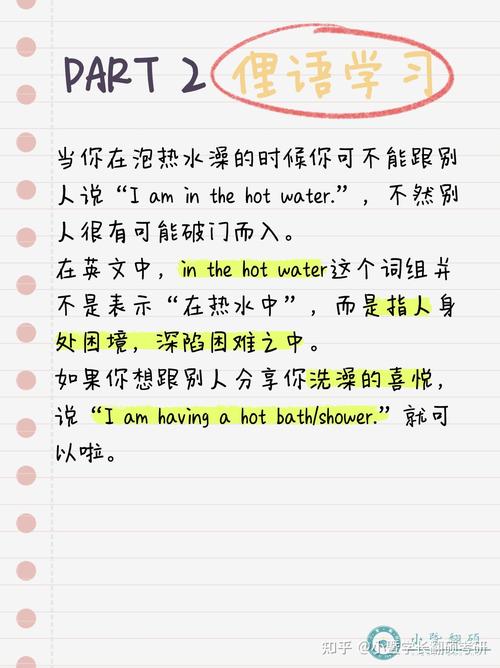 PART 2 俚语学习
当你在泡热水澡的时候你可不能跟别
人说“I am in the hot water.”，不然别
人很有可能破门而入。
在英文中，in the hot water这个词组并
不是表示“在热水中”，而是指人身
处困境，深陷困难之中。
如果你想跟别人分享你洗澡的喜悦，
说“I am having a hot bath/shower.”就可
以啦。
小陛翻硕
知乎 @小陛学长翻硕考研